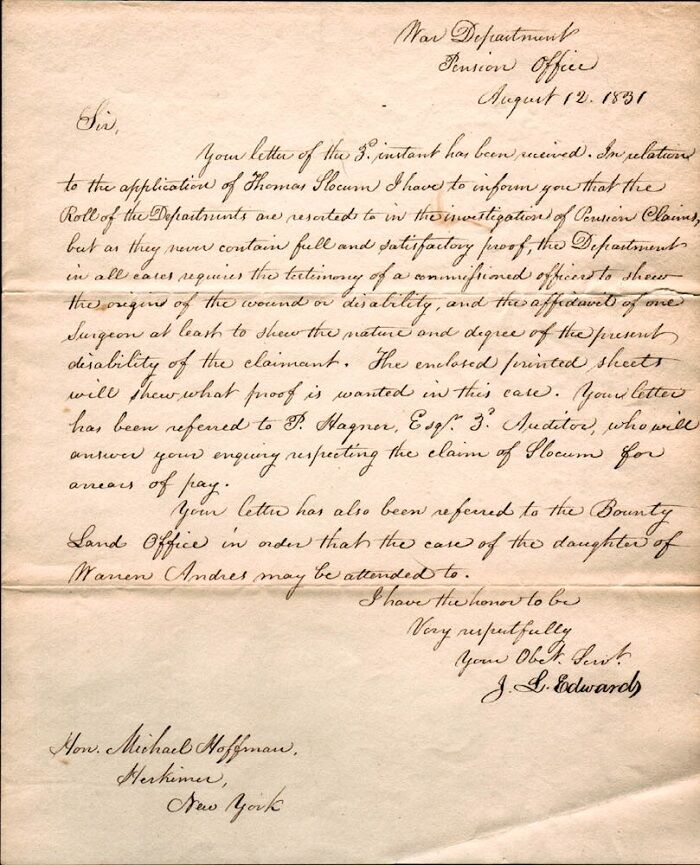 War Department
Pension Office
August 12. 1831
Sir,
Your letter of the 3d. instant has been received. In relation
to the application of Thomas Slocum I have to inform you that the
Roll of the Departments are resorted to in the investigation of Pension Claims,
but as they never contain full and satisfactory proof, the Department
in all cases requires the testimony of a commissioned officer to shew
the origin of the wound or disability, and the affidavit of one
Surgeon at least to shew the nature and degree of the present
disability of the claimant. The enclosed printed sheets
will shew what proof is wanted in this case. Your letter
has been referred to P. Hagner, Esqr. 3d. Auditor, who will
answer your enquiry respecting the claim of Slocum for
arrears of pay.
Your letter has also been referred to the Bounty
Land Office in order that the case of the daughter of
Warren Andres may be attended to.
I have the honor to be
Very respectfully
Your Obet. Servt.
J. L. Edwards
Hon. Michael Hoffman,
Herkimer,
New York